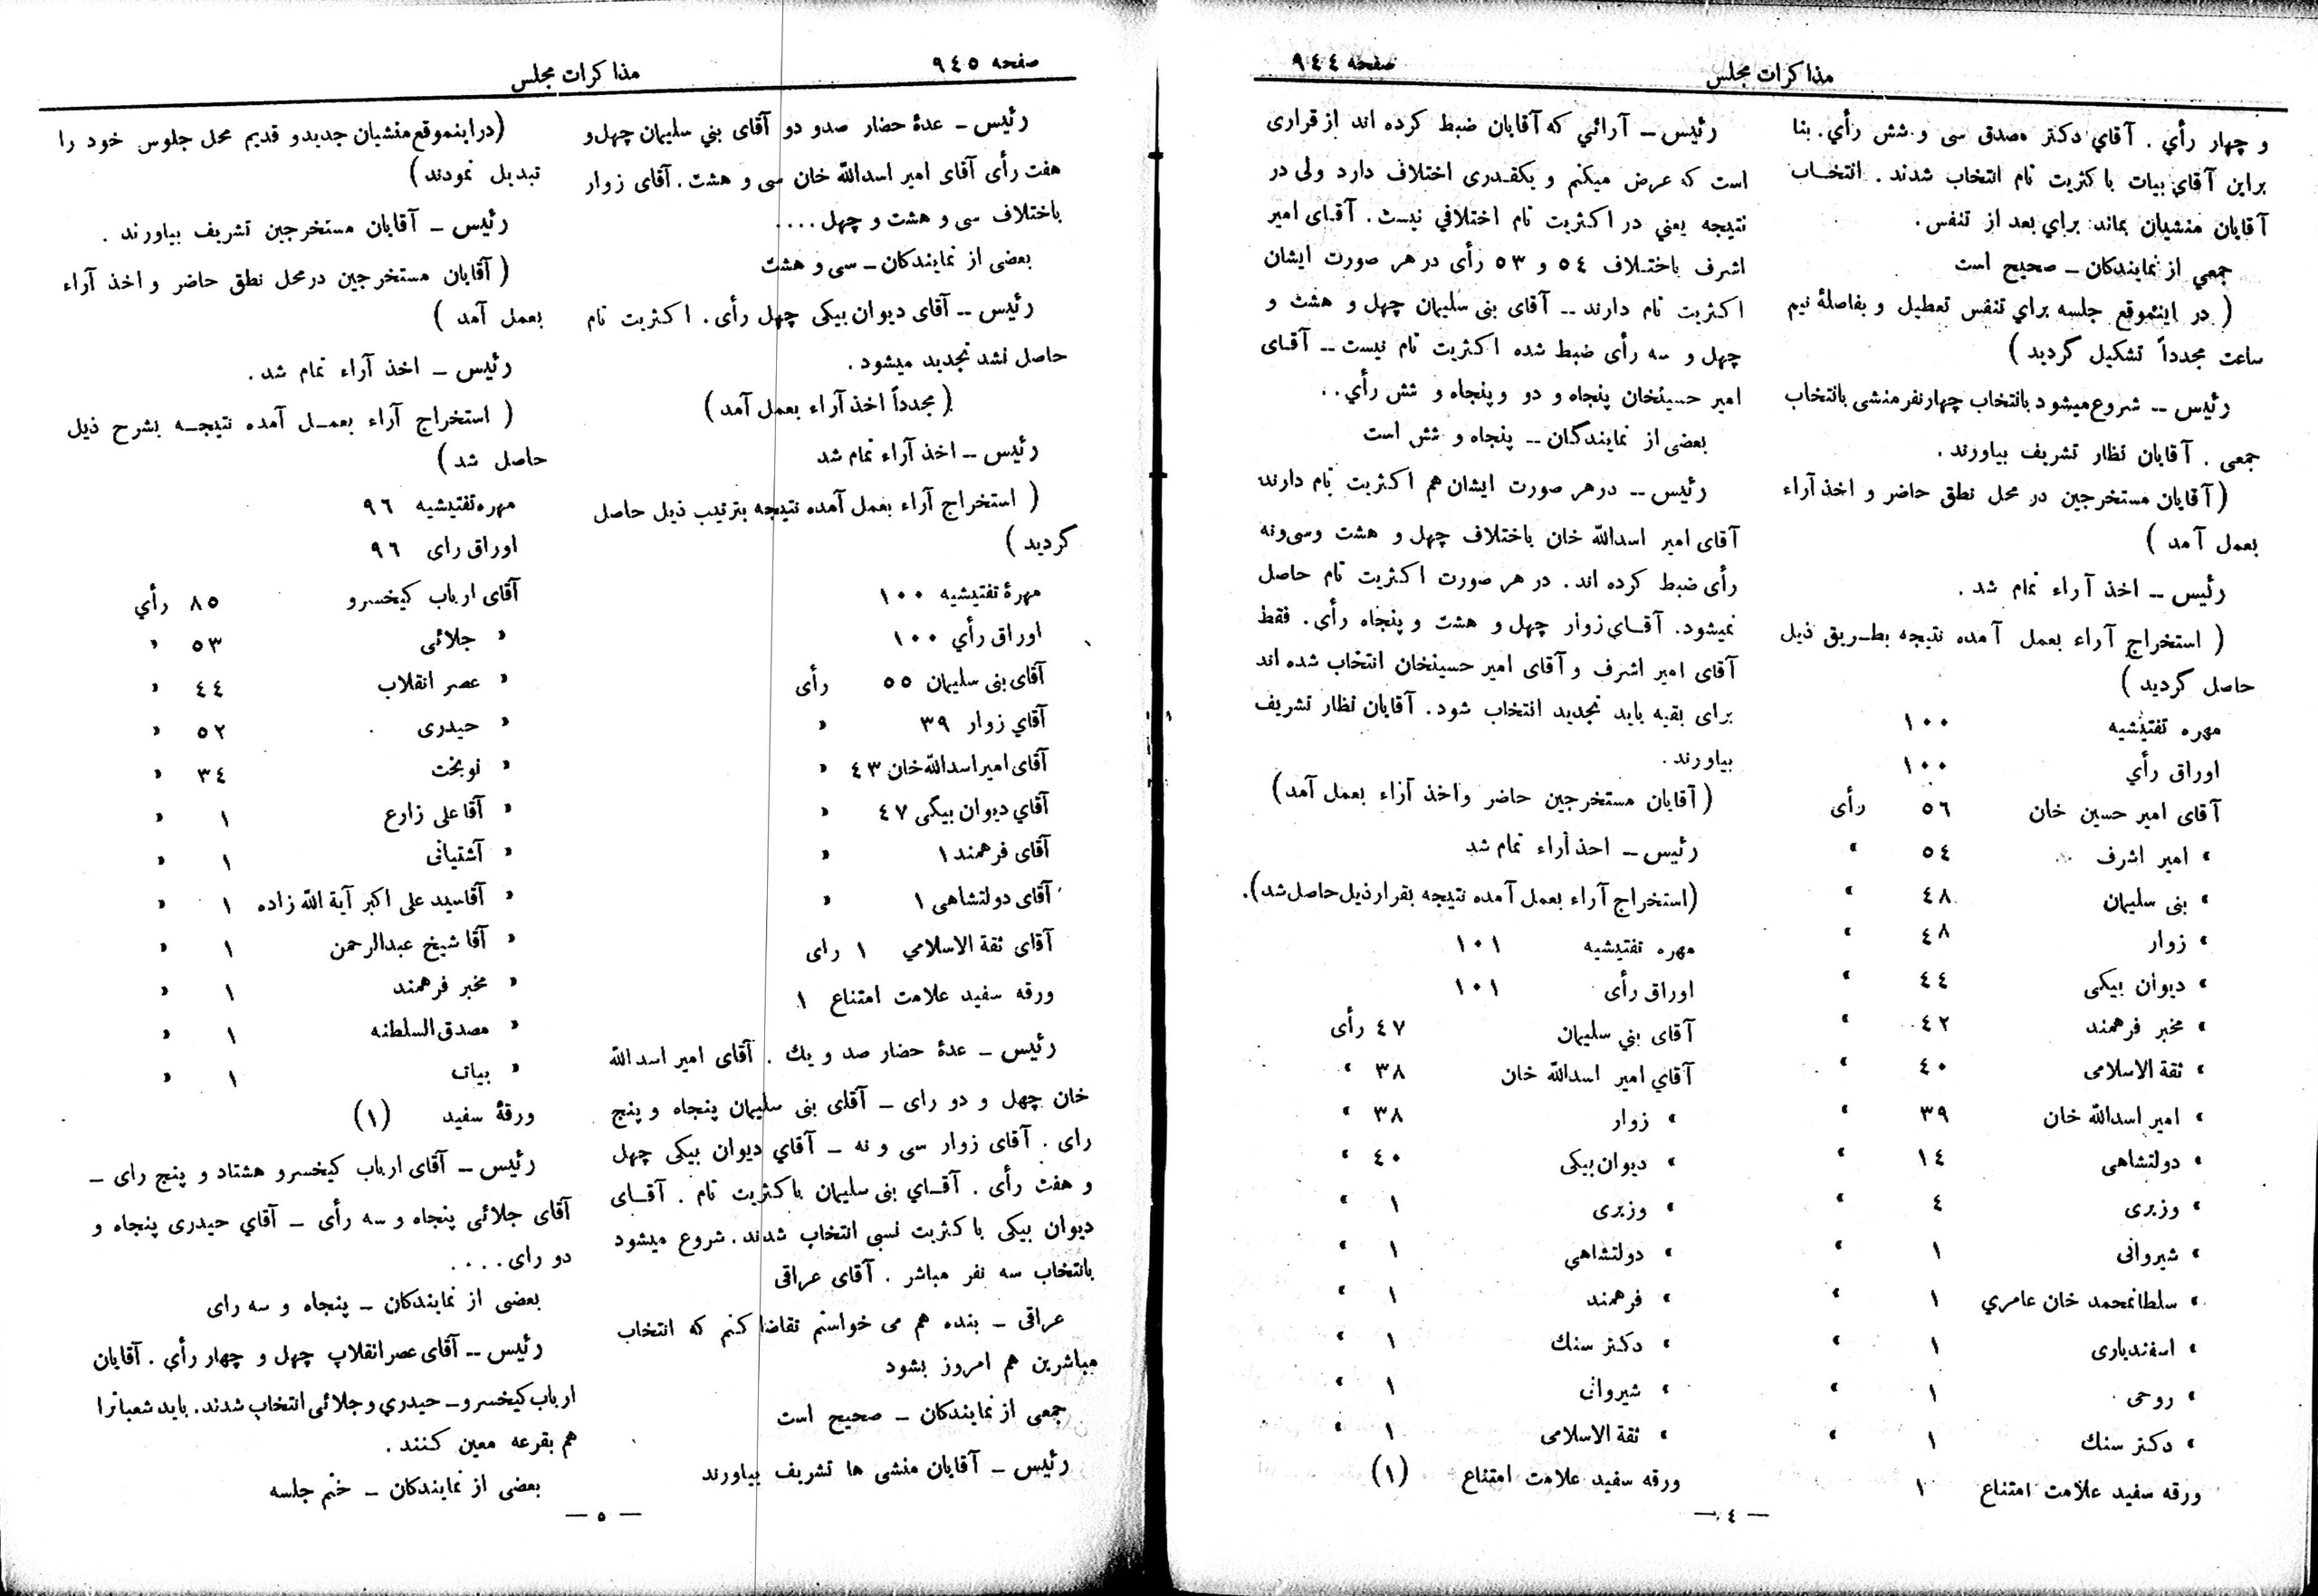 صفحه ٩٤٤
مذاکرات مجلس
و چهار رأي . آقاي دکتر مصدق سی و شش رأي . بنا
براین آقاي بیات باکثریت تام انتخاب شدند . انتخـاب
آقایان منشیان بماند براي بعد از تنفس .
جمعي از نمایندکان ــ صحیح است
( در اینموقع جلسه براي تنفس تعطیل و بفاصلهٔ نیم
ساعت مجدداً تشکیل گردید )
رئیس ــ شروع میشود بانتخاب چهار نفر منشی بانتخاب
جمعی . آقایان نظار تشریف بیاورند .
(آقایان مستخرجین در محل نطق حاضر و اخذ آراء
بعمل آمد )
رئیس ــ اخذ آراء تمام شد .
( استخراج آراء بعمل آمده نتیجه بطـریق ذیل
حاصل گردید )
مهره تفتیشیه ١٠٠
اوراق رأي ١٠٠
آقای امیر حسین خان ٥٦ رأی
» امیر اشرف ٥٤ »
» بنی سلیمان ٤٨ »
» زوار ٤٨ »
» دیوان بیکی ٤٤ »
» مخبر فرهمند ٤٢ »
» ثقة الاسلامی ٤٠ »
» امیر اسدالله خان ٣٩ »
» دولتشاهی ١٤ »
» وزیری ٤ »
» شیروانی ١ »
» سلطانمحمد خان عامري ١ »
» اسفندیاری ١ »
» روحی ١ »
» دکتر سنك ١ »
ورقه سفید علامت امتناع ١
رئیس ــ آرائي که آقایان ضبط کرده اند از قراری
است که عرض میکنم و یکقـدری اختلاف دارد ولی در
نتیجه یعني در اکثریت تام اختلافي نیست . آقـای امیر
اشرف باختـلاف ٥٤ و ٥٣ رأی در هر صورت ایشان
اکثریت تام دارند ــ آقای بنی سلیمان چهل و هشت و
چهل و سه رأی ضبط شده اکثریت تام نیست ــ آقـای
امیر حسینخان پنجاه و دو و پنجاه و شش رأي . .
بعضی از نمایندگان ــ پنجاه و شش است
رئیس ــ در هر صورت ایشان هم اکثریت تام دارند
آقای امیر اسدالله خان باختلاف چهل و هشت وسی‌ونه
رأی ضبط کرده اند . در هر صورت اکثریت تام حاصل
نمیشود . آقـای زوار چهل و هشت و پنجاه رأی . فقط
آقای امیر اشرف و آقای امیر حسینخان انتخاب شده اند
برای بقیه باید تجدید انتخاب شود . آقایان نظار تشریف
بیاورند .
( آقایان مستخرجین حاضر و اخذ آراء بعمل آمد )
رئیس ــ اخذ آراء تمام شد
(استخراج آراء بعمل آمده نتیجه بقرار ذیل حاصل شد).
مهره تفتیشیه ١٠١
اوراق رأی ١٠١
آقای بني سلیمان ٤٧ رأی
آقاي امیر اسدالله خان ٣٨ »
» زوار ٣٨ »
» دیوان بیکی ٤٠ »
» وزیری ١ »
» دولتشاهي ١ »
» فرهمند ١ »
» دکتر سنك ١ »
» شیروانی ١ »
» ثقة الاسلامی ١ »
ورقه سفید علامت امتناع (١)
ــ ٤ ــ
صفحه ٩٤٥
مذاکرات مجلس
رئیس ــ عدهٔ حضار صدو دو آقای بني سلیمان چهل و
هفت رأی آقای امیر اسدالله خان سی و هشت . آقای زوار
باختلاف سی و هشت و چهل . . . .
بعضی از نمایندکان ــ سی و هشت
رئیس ــ آقای دیوان بیکی چهل رأی . اکثریت تام
حاصل نشد تجدید میشود .
( مجدداً اخذ آراء بعمل آمد )
رئیس ــ اخذ آراء تمام شد
( استخراج آراء بعمل آمده نتیجه بترتیب ذیل حاصل
کردید )
مهرهٔ تفتیشیه ١٠٠
اوراق رأي ١٠٠
آقای بنی سلیمان ٥٥ رأی
آقاي زوار ٣٩ »
آقای امیر اسدالله خان ٤٣ »
آقاي دیوان بیگی ٤٧ »
آقای فرهمند ١ »
آقای دولتشاهی ١ »
آقای ثقة الاسلامي ١ رای
ورقه سفید علامت امتناع ١
رئیس ــ عدهٔ حضار صد و یك . آقای امیر اسد الله
خان چهل و دو رای ــ آقای بنی سلیمان پنجاه و پنج
رای . آقای زوار سی و نه ــ آقاي دیوان بیکی چهل
و هفت رأی . آقـاي بنی سلیمان باکثریت تام . آقـای
دیوان بیکی باکثریت نسبی انتخاب شدند . شروع میشود
بانتخاب سه نفر مباشر . آقای عراقی
عراقی ــ بنده هم می خواستم تقاضا کنم که انتخاب
مباشرین هم امروز بشود
جمعی از نمایندکان ــ صحیح است
رئیس ــ آقایان منشی ها تشریف بیاورند
(در اینموقع منشیان جدید و قدیم محل جلوس خود را
تبدیل نمودند)
رئیس ــ آقایان مستخرجین تشریف بیاورند .
( آقایان مستخرجین در محل نطق حاضر و اخذ آراء
بعمل آمد )
رئیس ــ اخذ آراء تمام شد .
( استخراج آراء بعمـل آمده نتیجـه بشرح ذیل
حاصل شد )
مهره تفتیشیه ٩٦
اوراق رای ٩٦
آقای ارباب کیخسرو ٨٥ رأي
» جلائی ٥٣ »
» عصر انقلاب ٤٤ »
» حیدری ٥٢ »
» نوبخت ٣٤ »
» آقا علی زارع ١ »
» آشتیانی ١ »
» آقاسید علی اکبر آیة الله زاده ١ »
» آقا شیخ عبدالرحمن ١ »
» مخبر فرهمند ١ »
» مصدق السلطنه ١ »
» بیات ١ »
ورقهٔ سفید (١)
رئیس ــ آقای ارباب کیخسرو هشتاد و پنج رای ــ
آقای جلائی پنجاه و سه رأی ــ آقاي حیدری پنجاه و
دو رای . . . .
بعضی از نمایندکان ــ پنجاه و سه رای
رئیس ــ آقای عصر انقلاب چهل و چهار رأي . آقایان
ارباب کیخسرو ــ حیدري و جلائی انتخاب شدند . باید شعباترا
هم بقرعه معین کنند .
بعضی از نمایندکان ــ ختم جلسه
ــ ٥ ــ